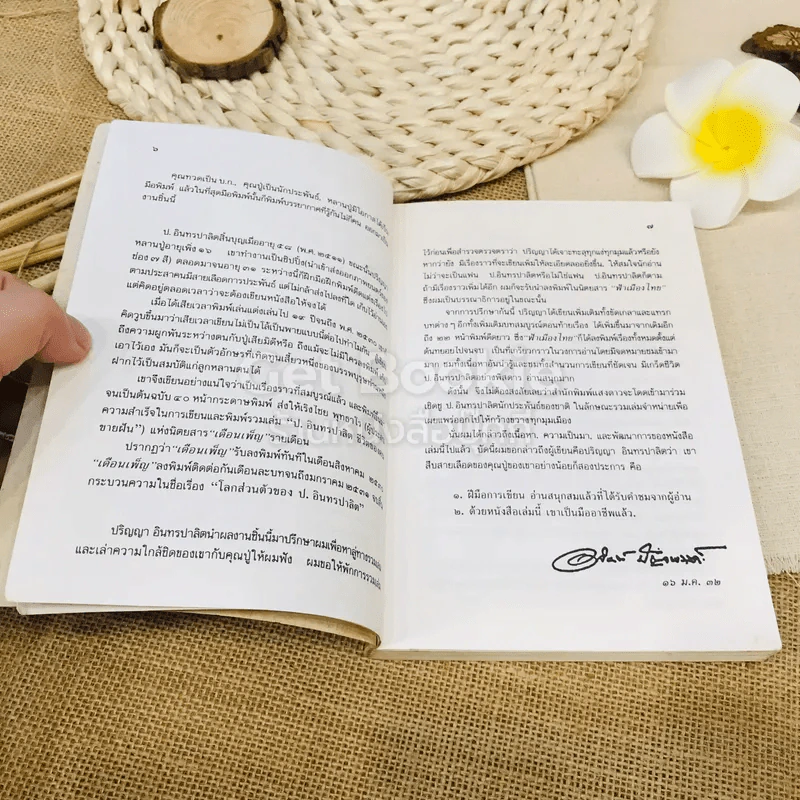 ๖
คุณทวดเป็น บ.ก., คุณปู่เป็นนักประพันธ์, หลานปู่มีโอกาสได้เป็น
มือพิมพ์ แล้วในที่สุดมือพิมพ์นั้นก็พิมพ์บรรยากาศที่รู้กันไม่กี่คน ออกมาเป็น
งานชิ้นนี้
ป. อินทรปาลิตสิ้นบุญเมื่ออายุ ๕๘ (พ.ศ. ๒๕๑๑) ขณะนั้นปริญญา
หลานปู่อายุเพิ่ง ๑๖ เขาทำงานเป็นชิปปิ้ง(นำเข้าส่งออกภาพยนตร์
ช่อง ๗ สี) ตลอดมาจนอายุ ๓๑ ระหว่างนี้ก็ฝึกมือฝึกพิมพ์ดีดแต่งเรื่อง
ตามประสาคนมีสายเลือดการประพันธ์ แต่ไม่กล้าส่งไปลงที่ใด เก็บไว้อ่านเอง
แต่คิดอยู่ตลอดเวลาว่าจะต้องเขียนหนังสือให้จงได้
เมื่อได้เสียเวลาพิมพ์เล่นแต่งเล่นไป ๑๙ ปีจนถึง พ.ศ. ๒๕๓๐
คิดวูบขึ้นมาว่าเสียเวลาเขียนไม่เป็นโล้เป็นพายแบบนี้ต่อไปทำไมกัน
ถึงความผูกพันระหว่างตนกับปู่เสียมิดีหรือ ถึงแม้จะไม่มีใครลงพิมพ์ให้
เอาไว้เอง มันก็จะเป็นตัวอักษรที่เทิดทูนเสี้ยวหนึ่งของบรรพบุรุษ
ฝากไว้เป็นสมบัติแก่ลูกหลานตนได้
เขาจึงเขียนอย่างแน่ใจว่าเป็นเรื่องราวที่สมบูรณ์แล้ว และพิมพ์
จนเป็นต้นฉบับ ๔๐ หน้ากระดาษพิมพ์ ส่งให้เริงไชย พุทธาโร
ความสำเร็จในการเขียนและพิมพ์รวมเล่ม “ป. อินทรปาลิต ชีวิตของคน
ขายฝัน”) แห่งนิตยสาร “เดือนเพ็ญ” รายเดือน
ปรากฏว่า “เดือนเพ็ญ” รับลงพิมพ์ทันทีในเดือนสิงหาคม ๒๕๓๐
“เดือนเพ็ญ” ลงพิมพ์ติดต่อกันเดือนละบทจนถึงมกราคม ๒๕๓๑
กระบวนความในชื่อเรื่อง “โลกส่วนตัวของ ป. อินทรปาลิต”
ปริญญา อินทรปาลิตนำผลงานชิ้นนี้มาปรึกษาผมเพื่อหาลู่ทางรวมเล่ม
และเล่าความใกล้ชิดของเขากับคุณปู่ให้ผมฟัง ผมขอให้พักการรวมเล่ม
๗
ไว้ก่อนเพื่อสำรวจตรวจตราว่า ปริญญาได้เจาะทะลุทุกแง่ทุกมุมแล้วหรือยัง
หากว่ายัง มีเรื่องราวที่จะเขียนเพิ่มให้ละเอียดลออยิ่งขึ้น ให้สมใจนักอ่าน
ไม่ว่าจะเป็นแฟน ป.อินทรปาลิตหรือไม่ใช่แฟน ป.อินทรปาลิตก็ตาม
ถ้ามีเรื่องราวเพิ่มได้อีก ผมก็จะรับนำลงพิมพ์ในนิตยสาร “ฟ้าเมืองไทย”
ซึ่งผมเป็นบรรณาธิการอยู่ในขณะนั้น
จากการปรึกษากันนี้ ปริญญาได้เขียนเพิ่มเติมทั้งขัดเกลาและแทรก
บทต่าง ๆ อีกทั้งเพิ่มเติมบทสมบูรณ์ตอนท้ายเรื่อง ได้เพิ่มขึ้นมาจากเดิมอีก
ถึง ๒๓ หน้าพิมพ์ดีดยาว ซึ่ง “ฟ้าเมืองไทย” ก็ได้ลงพิมพ์เรื่องทั้งหมดตั้งแต่
ต้นทยอยไปจนจบ เป็นที่เกรียวกราวในวงการอ่านโดยมีจดหมายชมเข้ามา
มาก ชมทั้งเนื้อหาอันน่ารู้และชมทั้งสำนวนการเขียนที่ชัดเจน มีเกร็ดชีวิต
ป. อินทรปาลิตอย่างพิสดาร น่าสนุกมาก
ดังนั้น จึงไม่ต้องสงสัยเลยว่าสำนักพิมพ์แสงดาวจะโดดเข้ามาร่วม
เชิดชู ป.อินทรปาลิตนักประพันธ์ของชาติ ในลักษณะรวมเล่มจำหน่ายเพื่อ
เผยแพร่ออกไปให้กว้างขวางทุกมุมเมือง
นั่นผมได้กล่าวถึงเนื้อหา, ความเป็นมา, และพัฒนาการของหนังสือ
เล่มนี้ไปแล้ว บัดนี้ผมขอกล่าวถึงผู้เขียนคือปริญญา อินทรปาลิตว่า เขา
สืบสายเลือดของคุณปู่ของเขาอย่างน้อยก็สองประการ คือ
๑. ฝีมือการเขียน อ่านสนุกสมแล้วที่ได้รับคำชมจากผู้อ่าน
๒. ด้วยหนังสือเล่มนี้ เขาเป็นมืออาชีพแล้ว.
๑๖ ม.ค. ๓๒